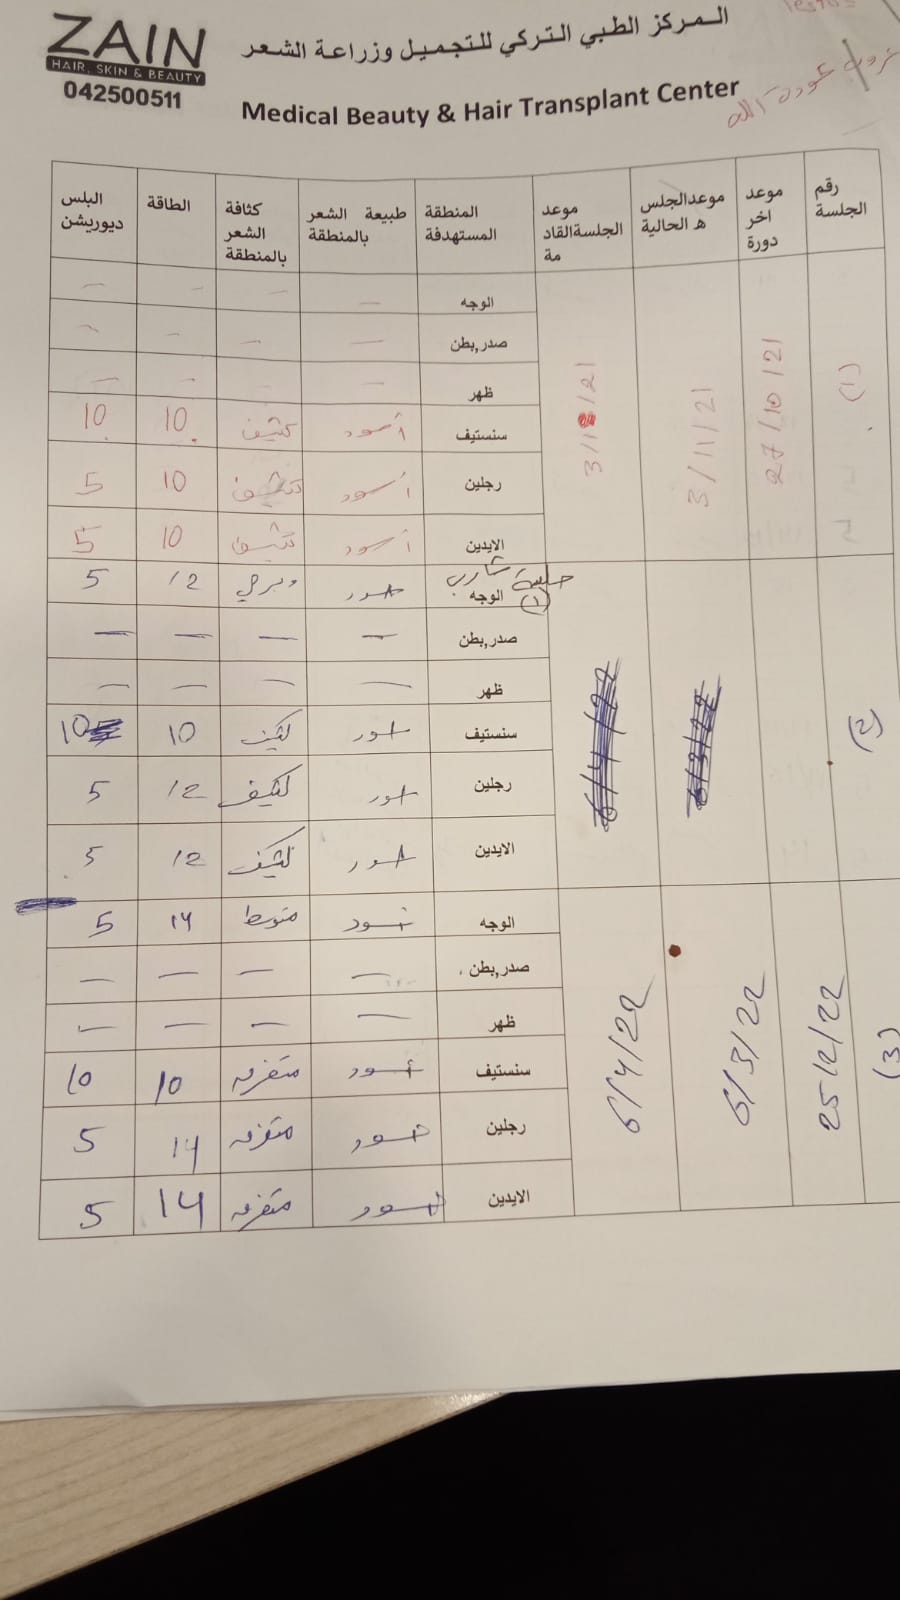 ZAIN
HAIR, SKIN & BEAUTY
042500511
المركز الطبي التركي للتجميل وزراعة الشعر
Medical Beauty & Hair Transplant Center
رقم الجلسة | موعد اخر دورة | موعدالجلسه الحالية | موعد الجلسةالقادمة | المنطقة المستهدفة | طبيعة الشعر بالمنطقة | كثافة الشعر بالمنطقة | الطاقة | البلس ديوريشن
(1) 27/10/21 3/11/21
الوجه — — — —
صدر,بطن — — — —
ظهر — — — —
سنستيف أسود كثيف 10 10
رجلين أسود كثيف 10 5
الايدين أسود كثيف 10 5
(2)
شارب
الوجه (1) 12 5
صدر,بطن — — — —
ظهر — — — —
سنستيف أسود كثيف 10 10
رجلين أسود كثيف 12 5
الايدين أسود كثيف 12 5
(3) 25/2/22 6/3/22 6/4/22
الوجه أسود متوسط 14 5
صدر,بطن — — — —
ظهر — — — —
سنستيف أسود متفرقه 10 10
رجلين أسود متفرقه 14 5
الايدين أسود متفرقه 14 5